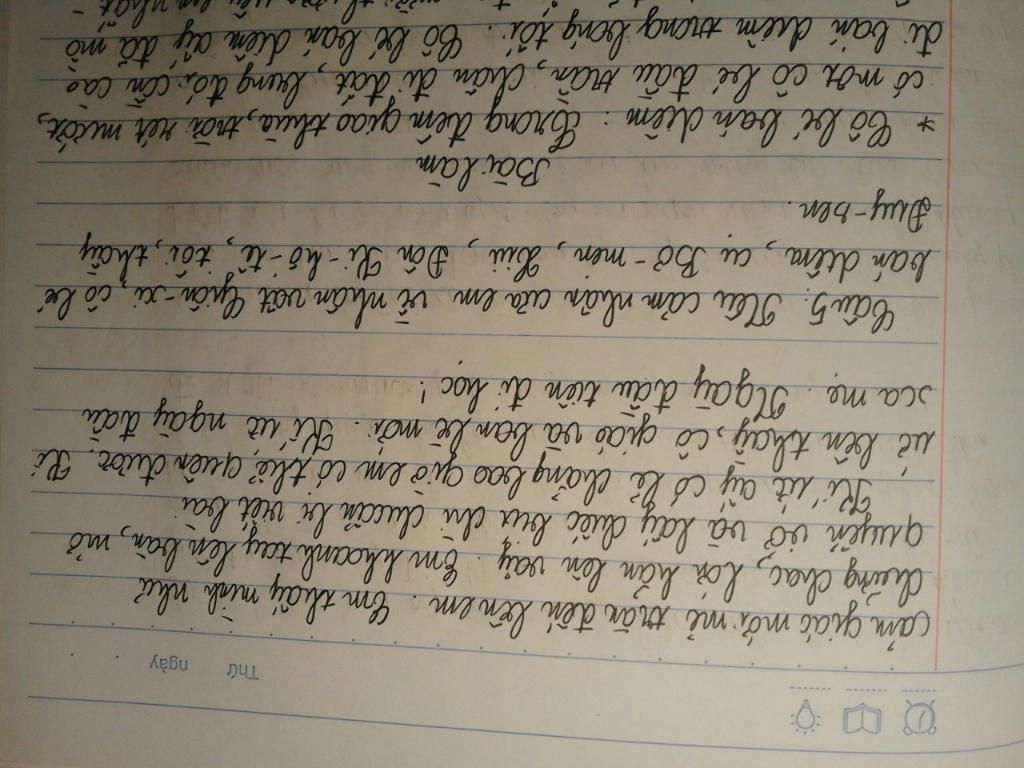 Thứ ngày
cảm giác mới mẻ tràn đến bên em. Em thấy mình như
chững chạc, lớn hẳn lên vậy. Em khoanh tay lên bàn, mở
quyển vở và lấy chiếc bút chì chuẩn bị viết bài
Kí ức ấy có lẽ chẳng bao giờ em có thể quên được. Kí
ức bên thầy, cô giáo và bạn bè mới. Kí ức ngày đầu
xa mẹ. Ngày đầu tiên đi học!
Câu 5: Nêu cảm nhận của em về nhân vật Giôn-xi, cô bé
bán diêm, cụ Bơ-men, Xiu, Đôn Ki-hô-tê, tôi, thầy
Đuy-sen.
Bài làm
* Cô bé bán diêm: Trong đêm giao thừa, trời rét mướt,
có một cô bé đầu trần, chân đi đất, bụng đói cồn cào
đi bán diêm trong bóng tối. Cô bé bán diêm ấy đã mồ